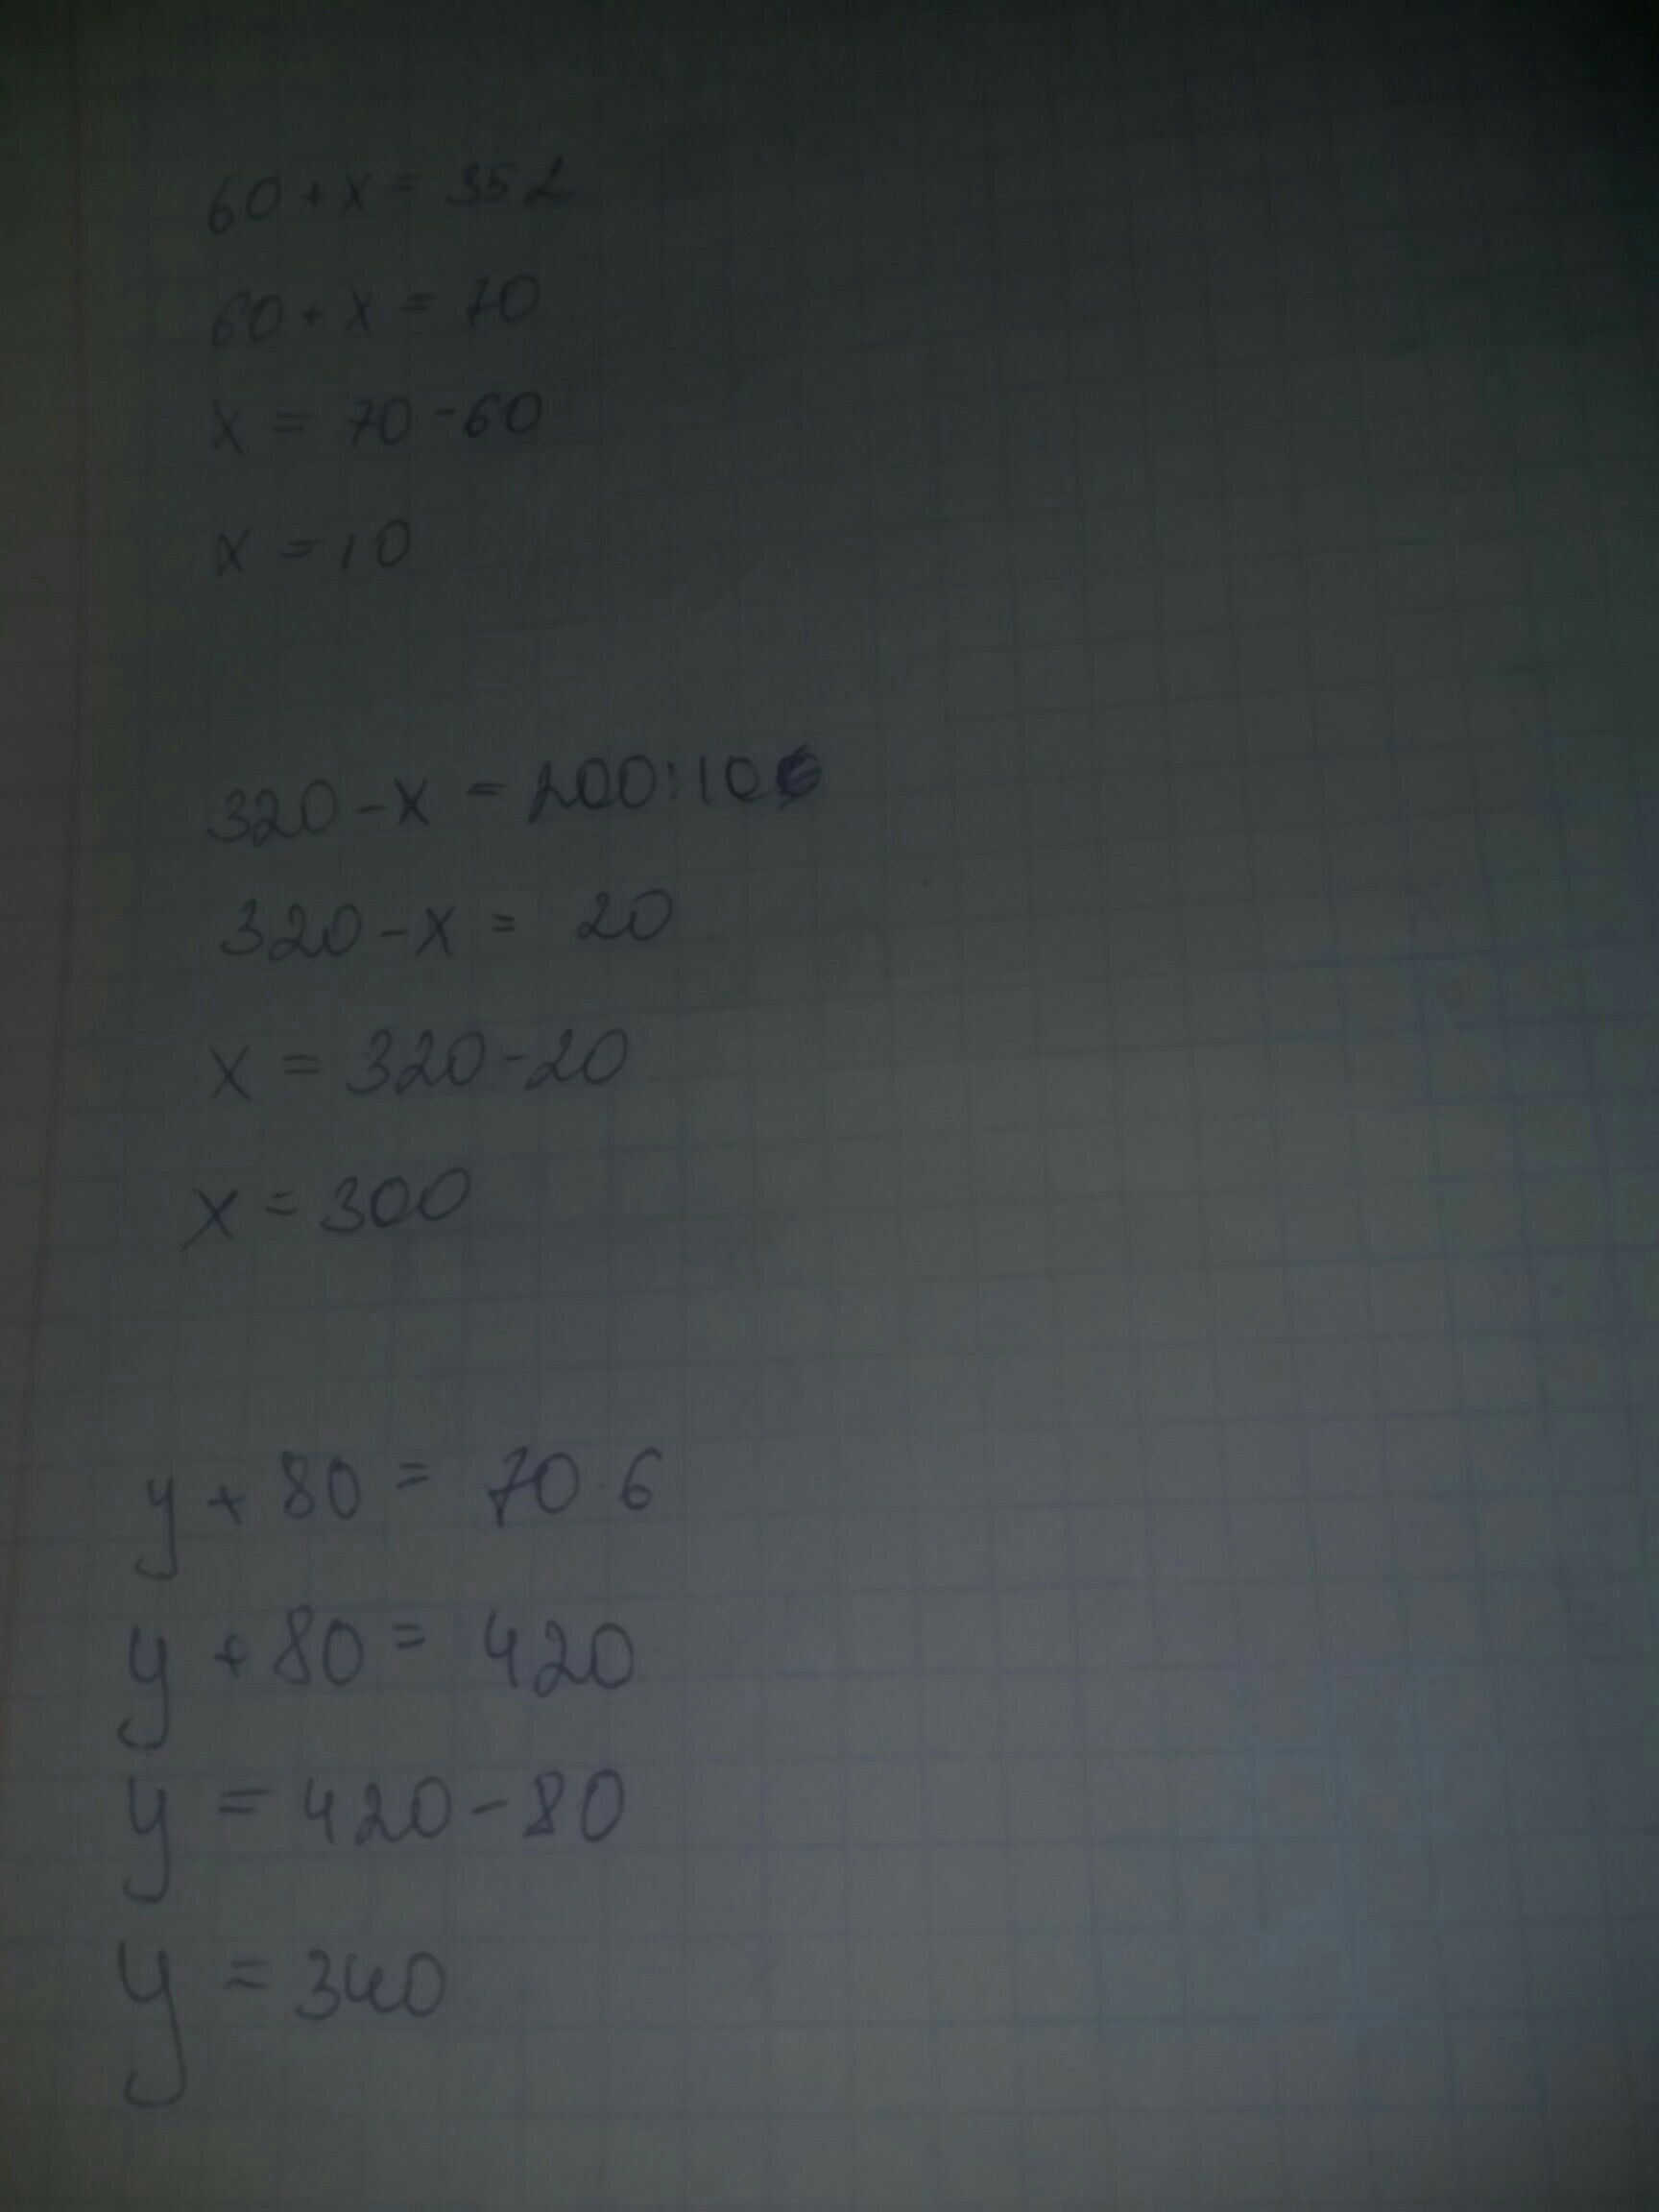 60 + x = 35 2
60 + x = 70
x = 70 - 60
x = 10
320 - x = 200 : 10
320 - x = 20
x = 320 - 20
x = 300
y + 80 = 70 · 6
y + 80 = 420
y = 420 - 80
y = 340